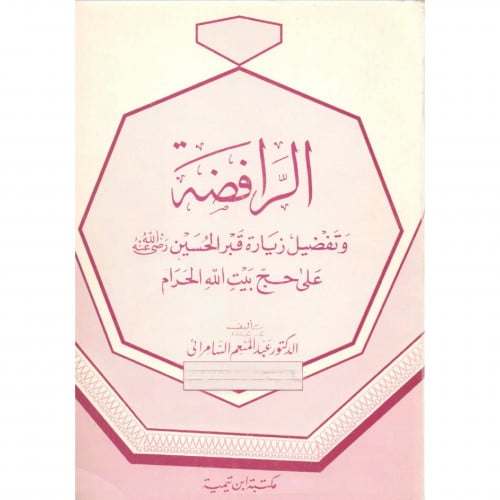 الرافضة
وتفضيل زيارة قبر الحسين رضي الله عنه
على حج بيت الله الحرام
تأليف
الدكتور عبد المنعم السامرائي
مكتبة ابن تيمية